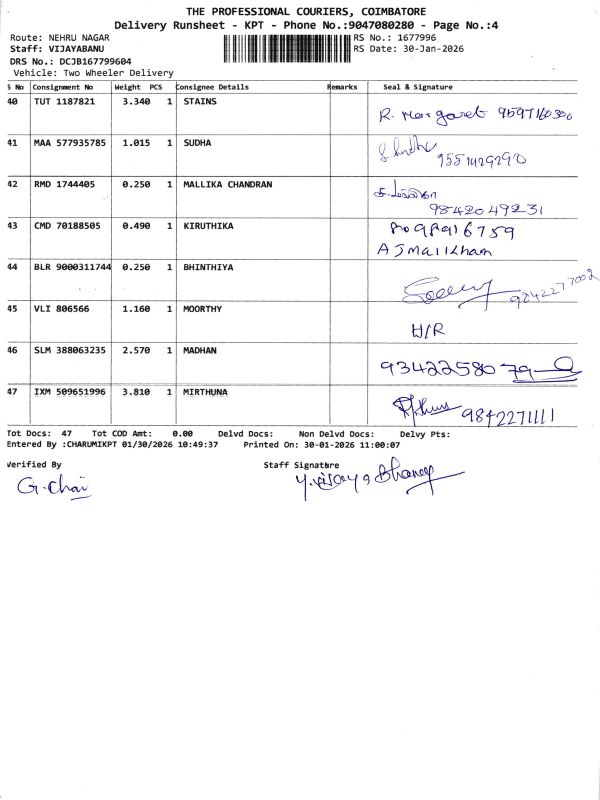 THE PROFESSIONAL COURIERS, COIMBATORE
Delivery Runsheet - KPT - Phone No.:9047080280 - Page No.:4
Route: NEHRU NAGAR
RS No.: 1677996
Staff: VIJAYABANU
RS Date: 30-Jan-2026
DRS No.: DCJB167799604
Vehicle: Two Wheeler Delivery
S No Consignment No Weight PCS Consignee Details Remarks Seal & Signature
40 TUT 1187821 3.340 1 STAINS
R. Margaret 9597160300
41 MAA 577935785 1.015 1 SUDHA
9551429290
42 RMD 1744405 0.250 1 MALLIKA CHANDRAN
9842049231
43 CMD 70188505 0.490 1 KIRUTHIKA
AJmalkham
44 BLR 9000311744 0.250 1 BHINTHIYA
9842277002
45 VLI 806566 1.160 1 MOORTHY
H/R
46 SLM 388063235 2.570 1 MADHAN
9342258079
47 IXM 509651996 3.810 1 MIRTHUNA
9842271111
Tot Docs: 47 Tot COD Amt: 0.00 Delvd Docs: Non Delvd Docs: Delvy Pts:
Entered By :CHARUMIKPT 01/30/2026 10:49:37 Printed On: 30-01-2026 11:00:07
Verified By Staff Signature
G. Chai